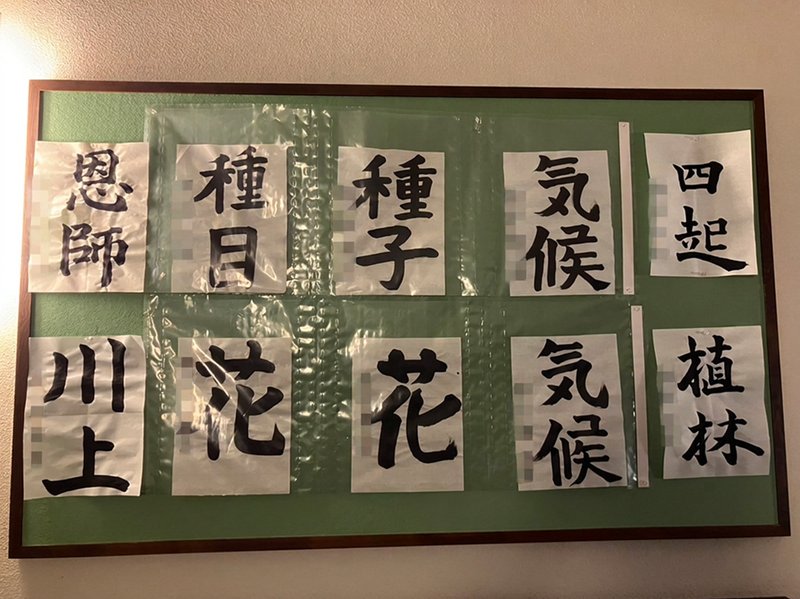 恩師
種目
種子
気候
四起
川上
花
花
気候
植林